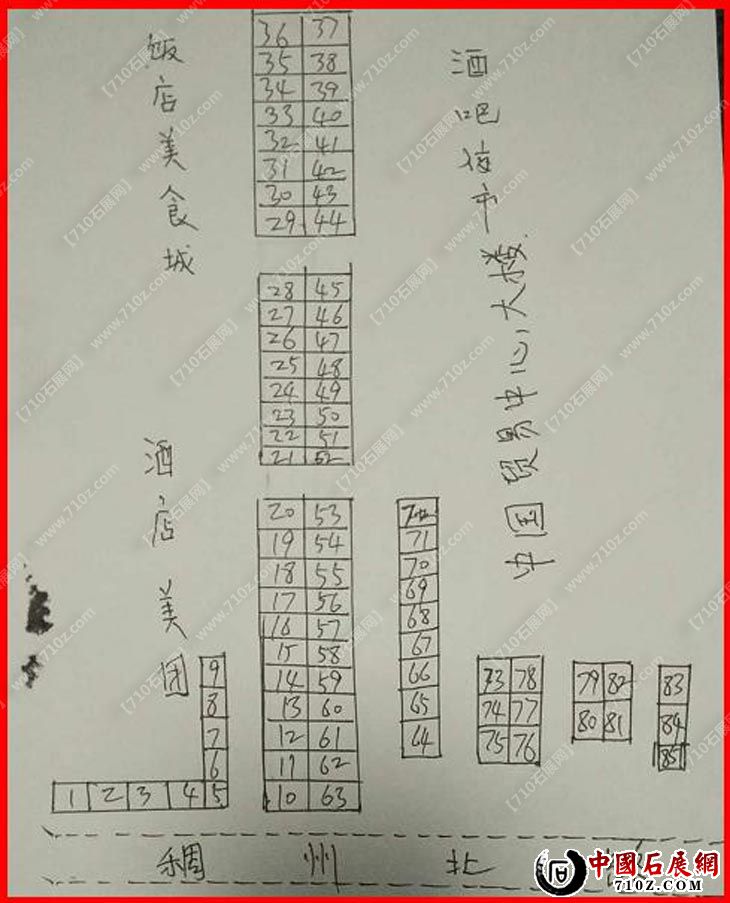 饭店美食城
酒吧夜市
中国贸易中心大楼
酒店美团
36 37
35 38
34 39
33 40
32 41
31 42
30 43
29 44
28 45
27 46
26 47
25 48
24 49
23 50
22 51
21 52
20 53
19 54
18 55
17 56
16 57
15 58
14 59
13 60
12 61
11 62
10 63
72
71
70
69
68
67
66
65
64
9
8
7
6
1 2 3 4 5
73 78
74 77
75 76
79 82
80 81
83
84
85
稠州北
中國石展網
710Z.com
【710石展网】 www.710z.com